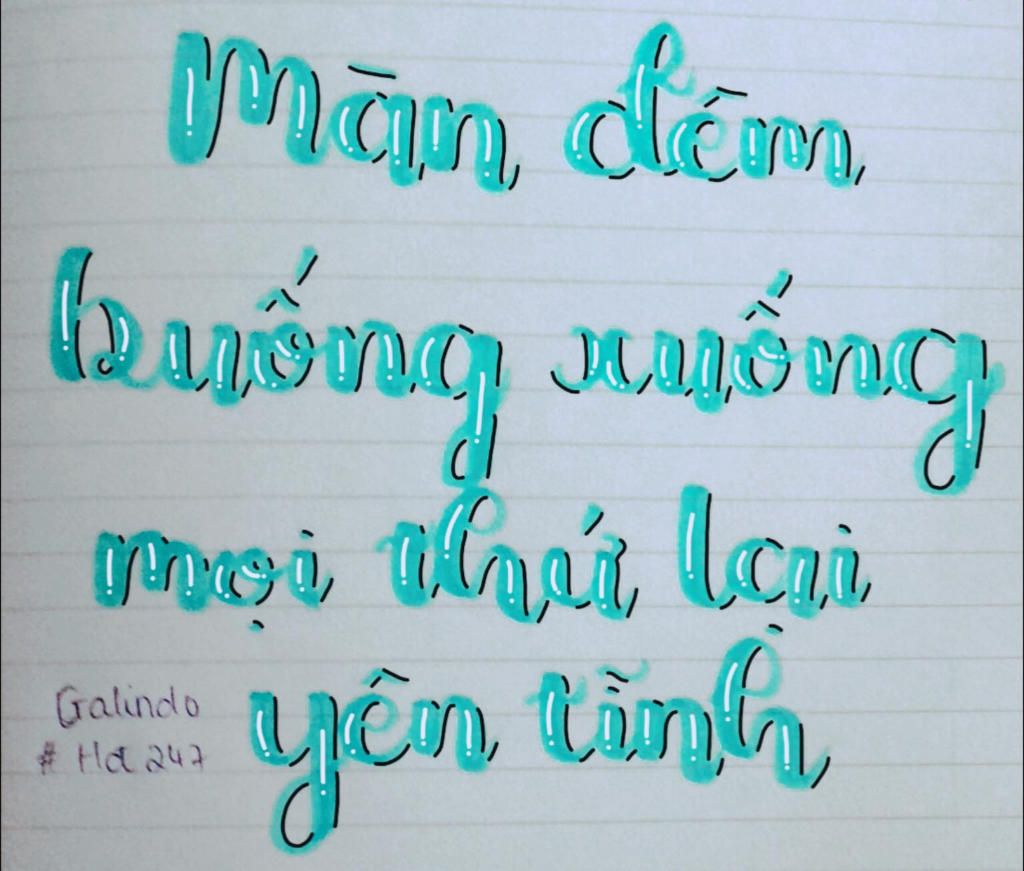 Màn đêm
buống xuống
mọi thứ lại
yên tĩnh
Galindo
# 247